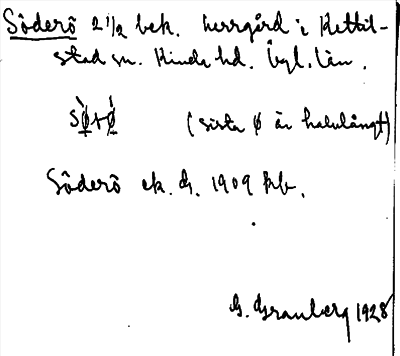 Söderö 2 1/2 bek. herrgård i Kettil-
stad sn. Kinda hd. Ögl. län.
(sista ø är halvlångt)
Söderö ek. G. 1909 krb.
G. Granberg 1928